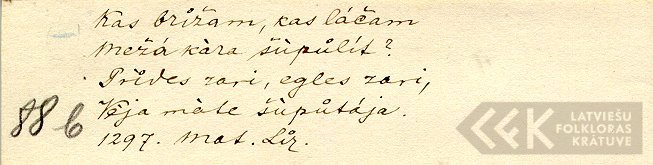 Kas brīžam, kas lâčam
Mežâ kàra šûpûlit?
Prîdes zari, egles zari,
Vêja màte šûpûtâja.
88 b
1297. Mat. Liz.
LATVIEŠU
FOLKLORAS
KRĀTUVE